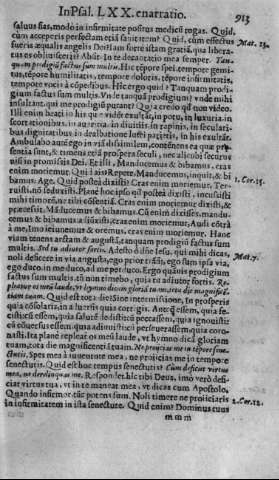 In Psal. LXX. enarratio. 913
saluus fias, modò in infirmitate positus medicū roges. Quid,
cùm acceperis perfectam etiā sanitatem? Quid, cùm effectus Mat. 22.
fueris æqualis angelis Dei? Iam forrè istam gratiā, qua liberatus
es obliuisceris? Absit. In te decantatio mea semper. Tanquam
prodigiū factus sum multis. Hîc tēpore spei, tempore gemitus,
tēpore humilitatis, tempore doloris, tēpore infirmitatis,
tempore vocis à cōpedibus. Hîc ergo quid? Tanquam prodigium
factus sum multis. Vnde tanquā prodigium? vnde mihi
insultant, qui me prodigiū putant? Quia credo qd non video.
Illi enim beati in his quę vidēt exultāt, in potu, in luxuria
in auaritia, in diuitiis, in rapinis, in secularibus
dignitatibus in dealbatione lutei parietis, in his exultāt.
Ambulo autē ego in via dissimilem, contēnens ea quæ præsentia
sunt, & timens etiā prospera seculi, nec alicubi securus
nisi in promissis Dei. Et illi, Manducemus & bibamus, cras
enim moriemur. Quid ais? Repete. Manducemus, inquit, & bibamus. 1. Cor. 15.
Age. Quid postea dixisti? Cras enim moriemur. Terruisti,
nō seduxisti. Plane hoc ipso qd postea dixisti, incussisti
mihi timorē, ne tibi cōsentiā. Cras enim moriemur dixisti, &
præcessit, Māducemus & bibamus. Cū enim dixisses, manducemus
& bibamus, adiunxisti, cras enim moriemur. Audi cōtrà
à me, Imò ieiunemus & oremus, cras enim moriemur. Hanc
viam tenens arctam & angustā, tanquam prodigiū factus sum
multis. Sed tu adiutor fortis. Adesto Domine Iesu, qui mihi dicas, Mat. 7.
noli deficere in via angusta, ego prior trāsii, ego sum ipsa via,
ego duco, in me duco, ad me perduco. Ergo quāuis prodigium
factus sum multis, tñ non timebo, quia tu adiutor fortis. Repleatur
os meū laude, vt hymno dicam gloriā tuam, tota die magnificentiam
tuam. Quid est tota die? Sine intermissione, In prosperis
quia cōsolaris, in aduersis quia corrigis. Antequā essem, quia fecisti:
cū essem, quia salutē dedisti: cū peccassem, quia ignouisti:
cū cōuersus essem, quia adiuuisti: cū perseuerassem, quia coronasti.
Ita planè repleat' os meū laude, vt hymno dicā gloriam
tuam, tota die magnificentiā tuam. Ne proiicias me in tēpore senectutis.
Spes mea à iuuentute mea, ne proiicias me in tempore
senectutis. Quid est hoc tempus senectutis? Cùm deficiet virtus
mea, ne derelinquas me. Respondet hîc tibi Deus, imo verò deficiat
virtus tua, vt in te maneat mea, vt dicas cum Apostolo,
Quando infirmor tūc potens sum. Noli timere ne proiiciaris 2. Cor. 12.
in infirmitatem in ista senectute. Quid enim? Dominus tuus
m m m